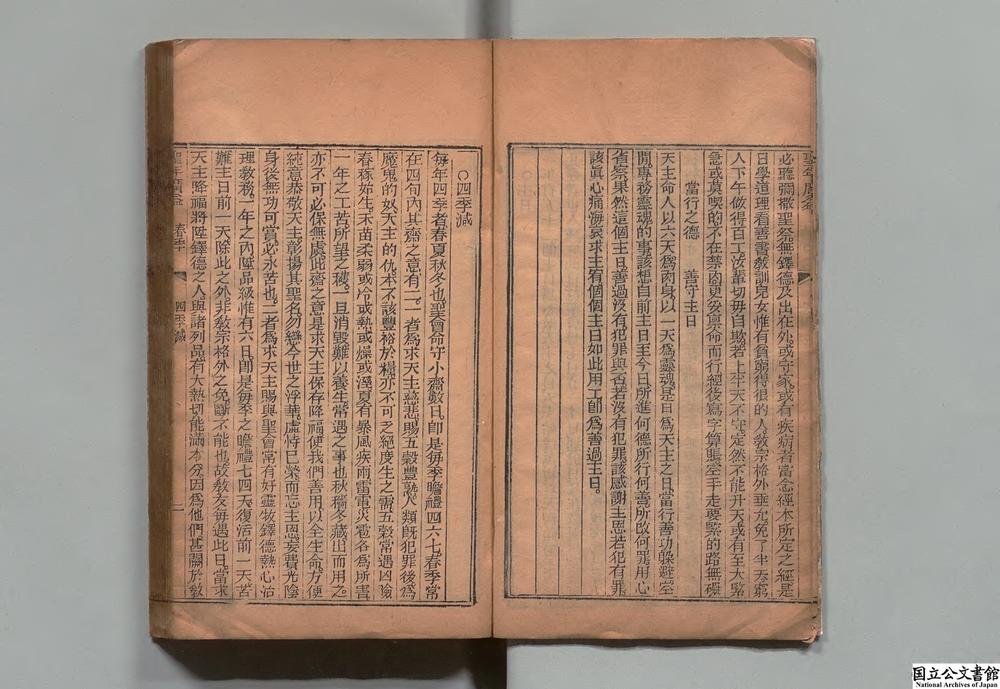 聖年廣益
必聽彌撒聖祭無鐸德及出在外或守家或有疾病者當念經本所定之經是
日學道理看善書教訓兒女惟有貧窮得很的人教宗格外垂允免了半天窮
人下午做得百工汝輩切毋自欺若上半天不守定然不能升天或有至大緊
急或莫喫的不在禁內更妥稟命而行經後寫字算賬空手走要緊的路無礙
當行之德 善守主日
天主命人以六天為肉身以一天為靈魂是日為天主之日當行善功躲避空
閒專務靈魂的事該想自前主日至今日所進何德所行何善所改何罪用心
省察果然這個主日善過沒有犯罪與否若沒有犯罪該感謝主恩若犯有罪
該眞心痛悔哀求主宥個個主日如此用工卽為善過主日
○四季減
每年四季者春夏秋冬也聖會命守小齋數日卽是每季瞻禮四六七春季常
在四旬內其齋之意有二一者為求天主慈悲賜五穀豐熟人類旣犯罪後為
魔鬼的奴天主的仇本不該豐裕於糧亦不可乏絕度生之需五穀常遇凶險
春稼始生禾苗柔弱或冷或熱或燥或溼夏有暴風疾雨雷電災雹各為所害
一年之工苦所望之穫一旦消毀難以養生常遇之事也秋穡冬藏出而用之
亦不可必保無處此齋之意是求天主保存降福使我們善用以全生命方便
純意恭敬天主彰揚其聖名勿戀今世之浮華虛恃巳榮而忘主恩妄費光陰
身後無功可賞必永苦也二者為求天主賜與聖會常有好靈牧鐸德熱心治
理教務一年之內陞品級惟有六日卽是每季之瞻禮七四天復活前一天苦
難主日前一天除此之外非教宗格外之免斷不能也故教友每遇此日當求
天主降福將陞鐸德之人與諸列品有大熱切能滿本分因為他們甚關於教
聖年廣益 春季 四季減 一
国立公文書館
National Archives of Japan